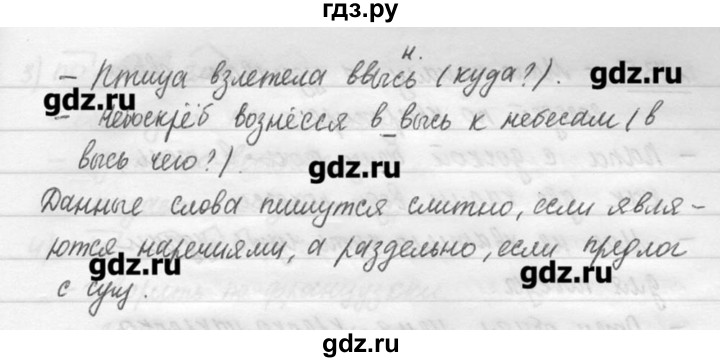 гдз.ру
н.
– Птица взлетела ввысь (куда?).
gdz.ru
gdz.ru
– Небоскрёб вознёсся в высь к небесам (в
высь чего?).
gdz.ru
Данные слова пишутся слитно, если явля-
ются наречиями, а раздельно, если предлог
gdz.ru
gdz.ru
с сущ.
gdz.ru